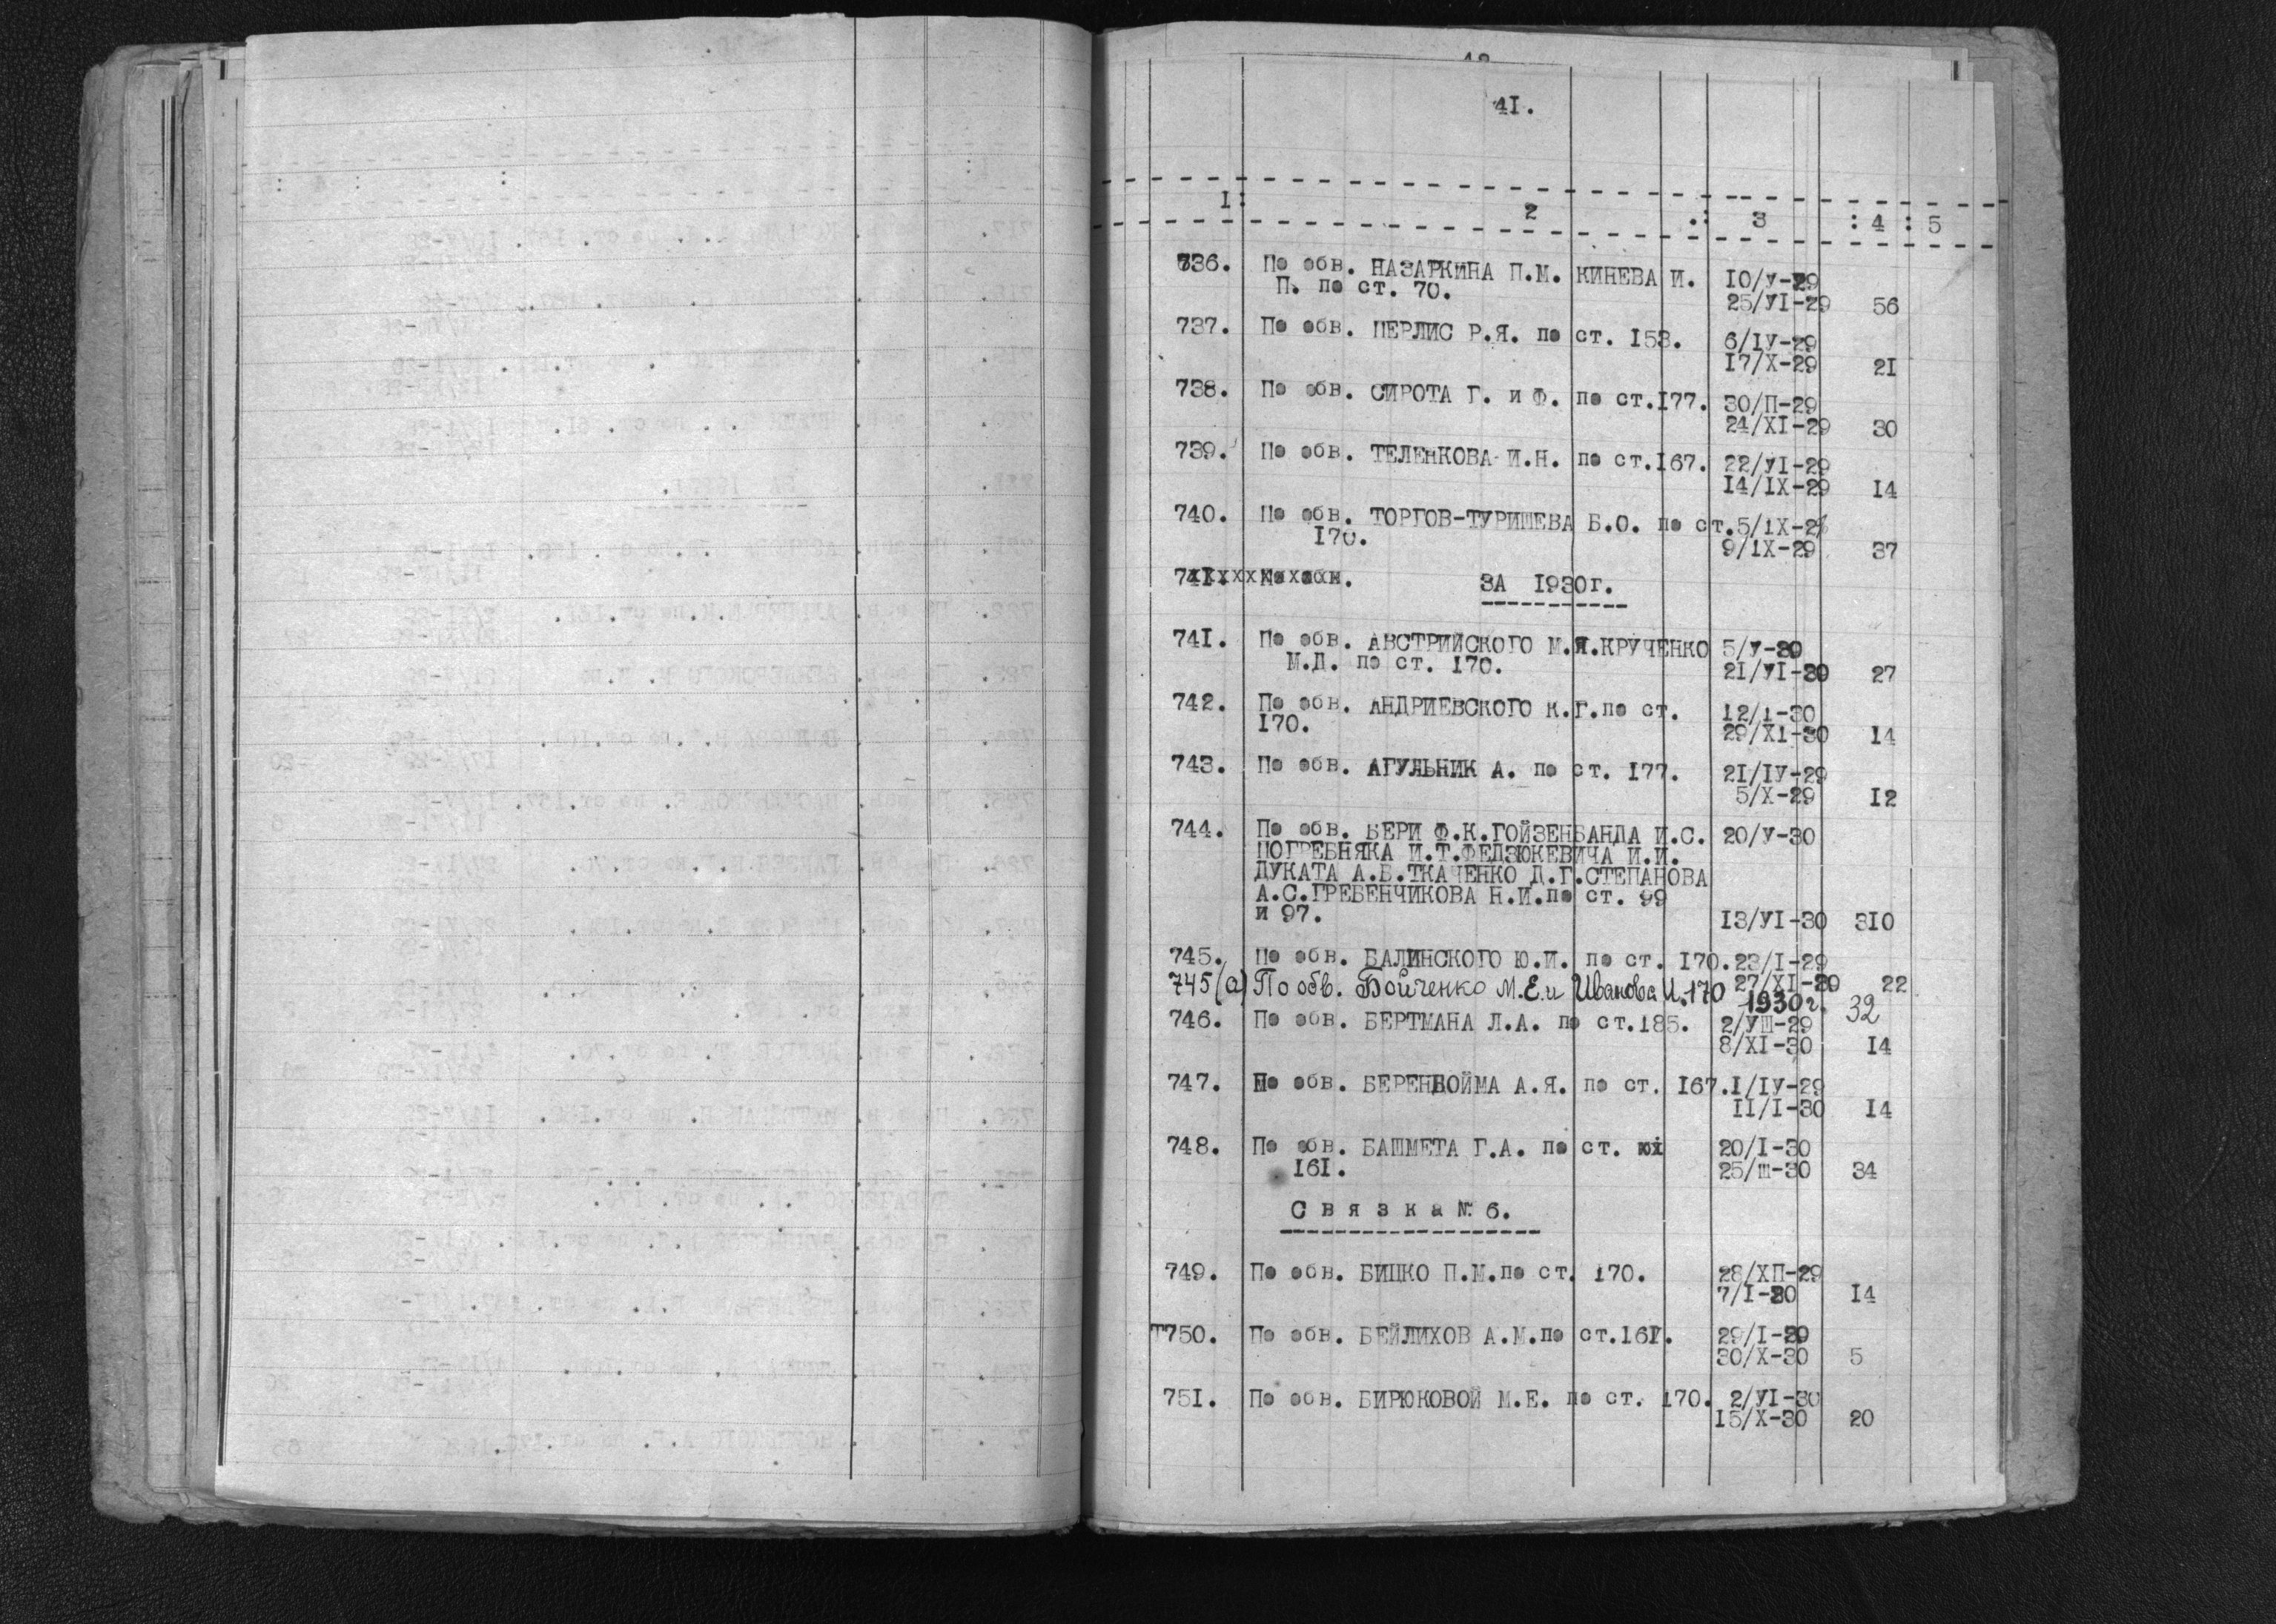 41.
1: 2 .: 3 : 4 : 5
736. По обв. НАЗАРКИНА П.М. КИНЕВА И. 10/У-29
П. по ст. 70. 25/УI-29 56
737. По обв. ПЕРЛИС Р.Я. по ст. 153. 6/IУ-29
17/Х-29 21
738. По обв. СИРОТА Г. и Ф. по ст.177. 30/П-29
24/ХI-29 30
739. По обв. ТЕЛЕНКОВА И.Н. по ст.167. 22/УI-29
14/IХ-29 14
740. По обв. ТОРГОВ-ТУРИШЕВА Б.О. по ст. 5/IХ-28
170. 9/IХ-29 37
ЗА 1930г.
741. По обв. АВСТРИЙСКОГО М.Я.КРУЧЕНКО 5/У-30
М.Д. по ст. 170. 21/УI-30 27
742. По обв. АНДРИЕВСКОГО К.Г.по ст. 12/I-30
170. 29/ХI-30 14
743. По обв. АГУЛЬНИК А. по ст. 177. 21/IУ-29
5/Х-29 12
744. По обв. БЕРИ Ф.К.ГОЙЗЕНБАНДА И.С. 20/У-30
ПОГРЕБНЯКА И.Т.ФЕДЗЮКЕВИЧА И.И.
ДУКАТА А.В.ТКАЧЕНКО Д.Г.СТЕПАНОВА
А.С.ГРЕБЕНЧИКОВА Н.И.по ст. 99
и 97. 13/УI-30 310
745. По обв. БАЛИНСКОГО Ю.И. по ст. 170. 23/I-29
27/ХI-29 22
745(а) По обв. Бойченко М.Е. и Иванова И. 170 1930г. 32
746. По обв. БЕРТМАНА Л.А. по ст.185. 2/УШ-29
8/ХI-30 14
747. По обв. БЕРЕНБОЙМА А.Я. по ст. 167. 1/IУ-29
11/I-30 14
748. По обв. БАШМЕТА Г.А. по ст. 20/I-30
161. 25/Ш-30 34
С в я з к а № 6.
749. По обв. БИЦКО П.М.по ст. 170. 28/ХП-29
7/I-30 14
750. По обв. БЕЙЛИХОВ А.М.по ст.161. 29/I-29
30/Х-30 5
751. По обв. БИРЮКОВОЙ М.Е. по ст. 170. 2/УI-30
15/Х-30 20